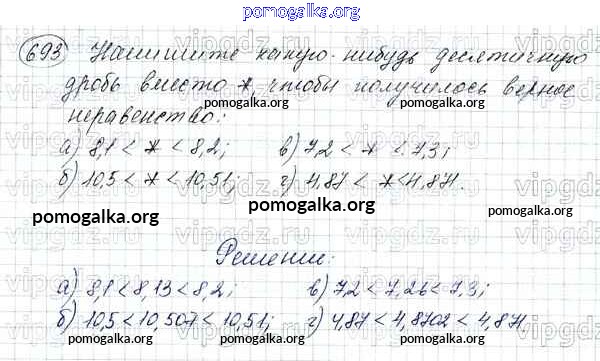 pomogalka.org
693 Напишите какую-нибудь десятичную
дробь вместо * чтобы получилось верное
неравенство:
pomogalka.org pomogalka.org
а) 8,1 < * < 8,2; в) 7,2 < * < 7,3;
б) 10,5 < * < 10,51; г) 4,87 < * < 4,871.
pomogalka.org pomogalka.org pomogalka.org
Решение:
pomogalka.org
а) 8,1 < 8,13 < 8,2; в) 7,2 < 7,26 < 7,3;
б) 10,5 < 10,507 < 10,51; г) 4,87 < 4,8702 < 4,871.
pomogalka.org pomogalka.org
vipgdz.ru